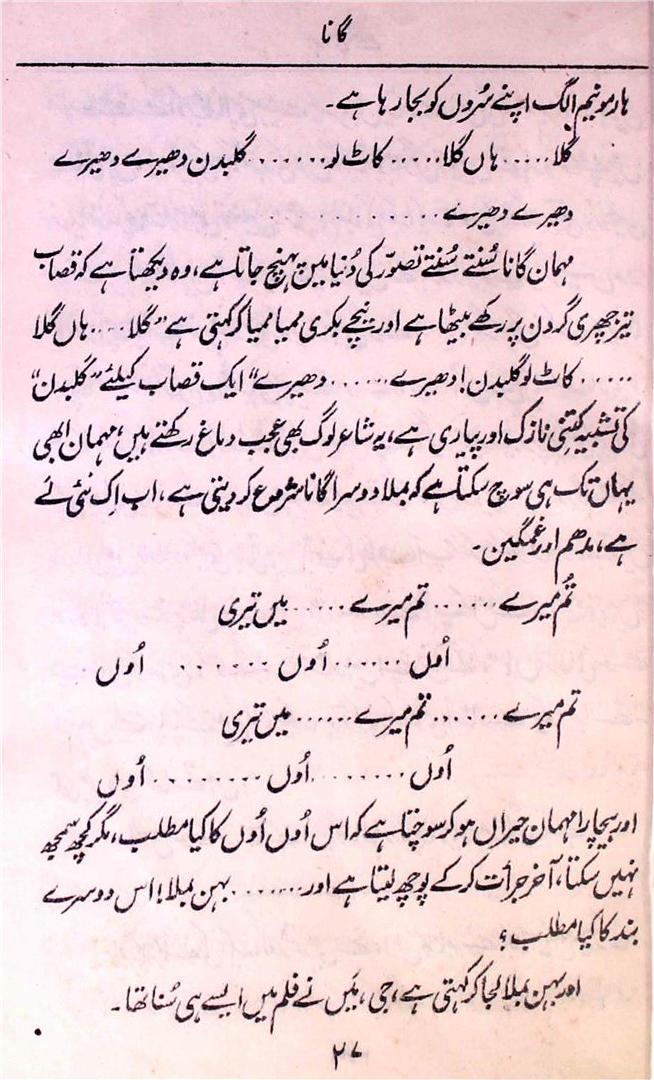 گانا
ہارمونیم الگ اپنے سُروں کو بجا رہا ہے۔
گلا..... ہاں گلا..... کاٹ لو....... گلبدن دھیرے دھیرے
دھیرے دھیرے ............
مہمان گانا سُنتے سُنتے تصوّر کی دُنیا میں پہنچ جاتا ہے، وہ دیکھتا ہے کہ قصاب
تیز چھری گردن پر رکھے بیٹھا ہے اور نیچے بکری ممیا ممیا کر کہتی ہے "گلا.... ہاں گلا
..... کاٹ لو گلبدن! دھیرے...... دھیرے" ایک قصاب کیلئے "گلبدن"
کی تشبیہ کِتنی نازک اور پیاری ہے، یہ شاعر لوگ بھی عجب دماغ رکھتے ہیں، مہمان ابھی
یہاں تک ہی سوچ سکتا ہے کہ بملا دوسرا گانا شروع کر دیتی ہے، اب اِک نئی لے
ہے، مدھم اور غمگین۔
تُم میرے...... تم میرے..... میں تیری
اُوں....... اُوں ........ اُوں
تم میرے...... تم میرے...... میں تیری
اُوں......... اُوں......... اُوں
اور بیچارا مہمان حیراں ہو کر سوچتا ہے کہ اس اُوں اُوں کا کیا مطلب، مگر کچھ سمجھ
نہیں سکتا، آخر جرأت کر کے پوچھ لیتا ہے اور....... بہن بملا! اس دوسرے
بند کا کیا مطلب؟
اور بہن بملا لجا کر کہتی ہے، جی، مَیں نے فلم میں ایسے ہی سُنا تھا۔
۲۷